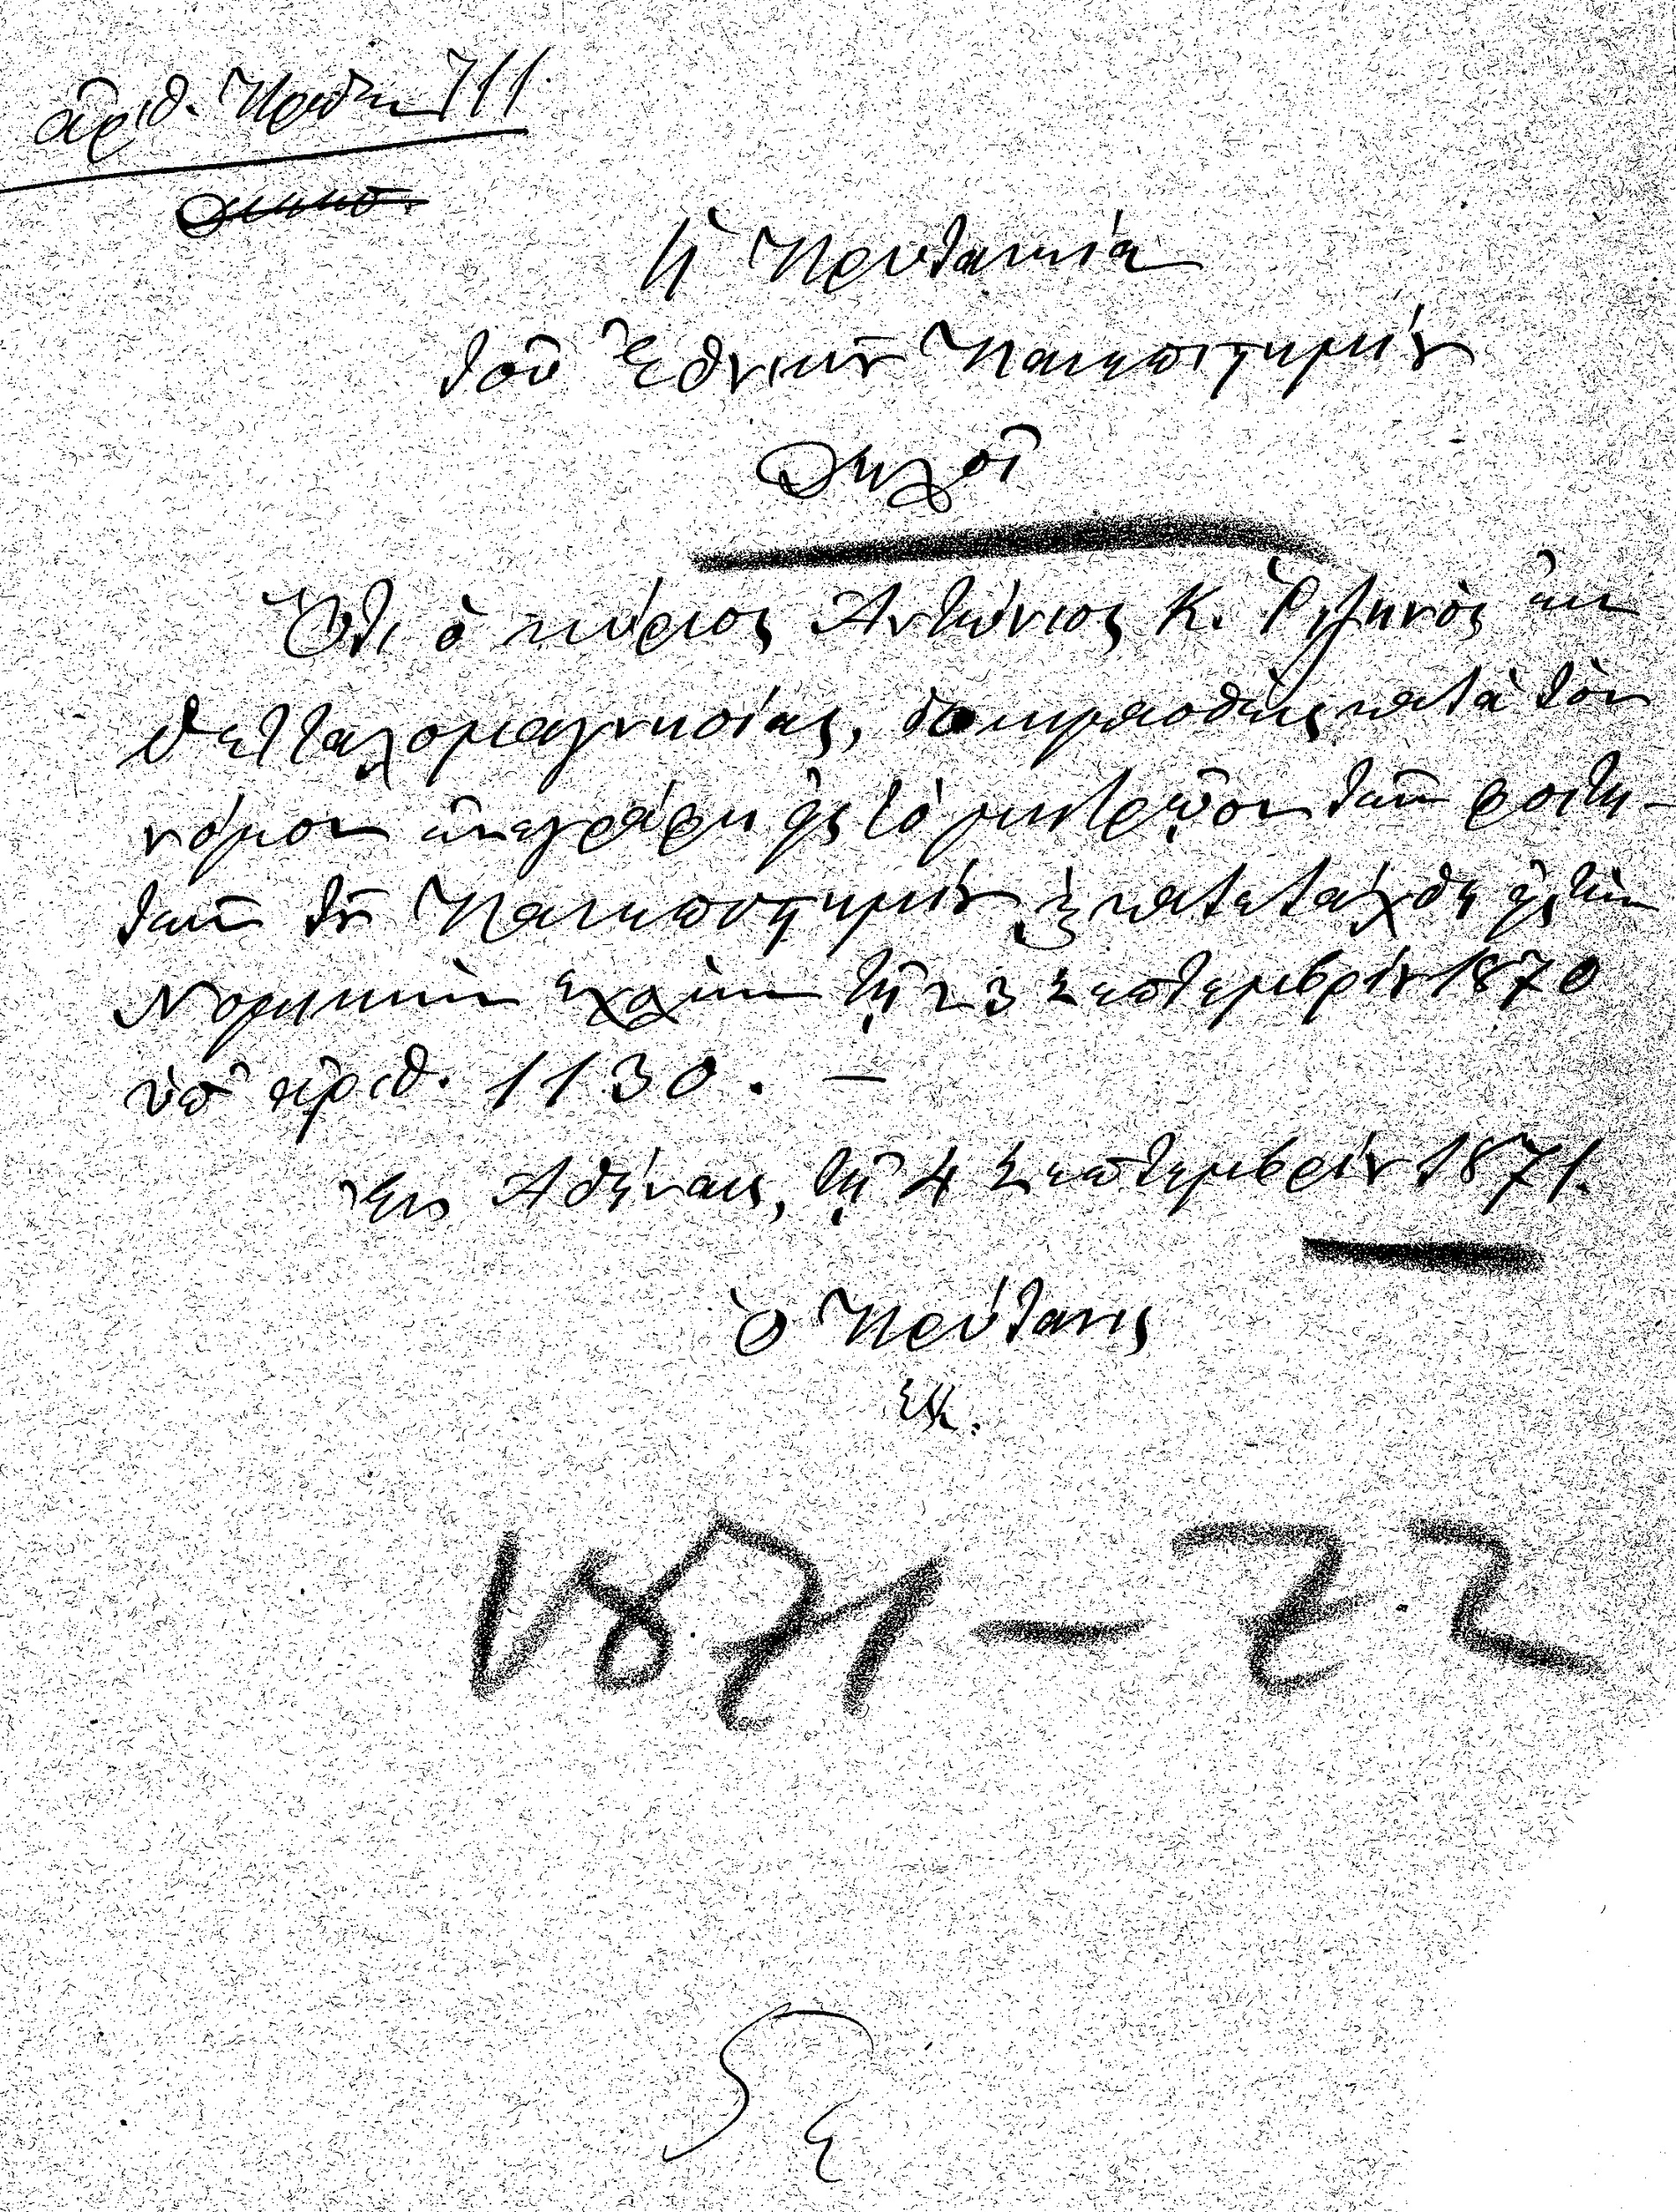 ἀριθ. Πρωτ. 711.
Ἡ Πρυτανεία
τοῦ Ἐθνικοῦ Πανεπιστημίου
Δηλοῖ
Ὅτι ὁ κύριος Ἀντώνιος Κ. Ῥιζηνὸς ἐκ
Θετταλομαγνησίας, δοκιμασθεὶς κατὰ τὸν
νόμον ἐνεγράφη εἰς τὸ μητρῷον τῶν φοιτη-
τῶν τοῦ Πανεπιστημίου, κατετάχθη εἰς τὴν
Νομικὴν σχολὴν τῇ 23 Σεπτεμβρίου 1870
ὑπ' ἀριθ. 1130. —
Ἐν Ἀθήναις, τῇ 4 Σεπτεμβρίου 1871.
Ὁ Πρύτανις
1871 - 72